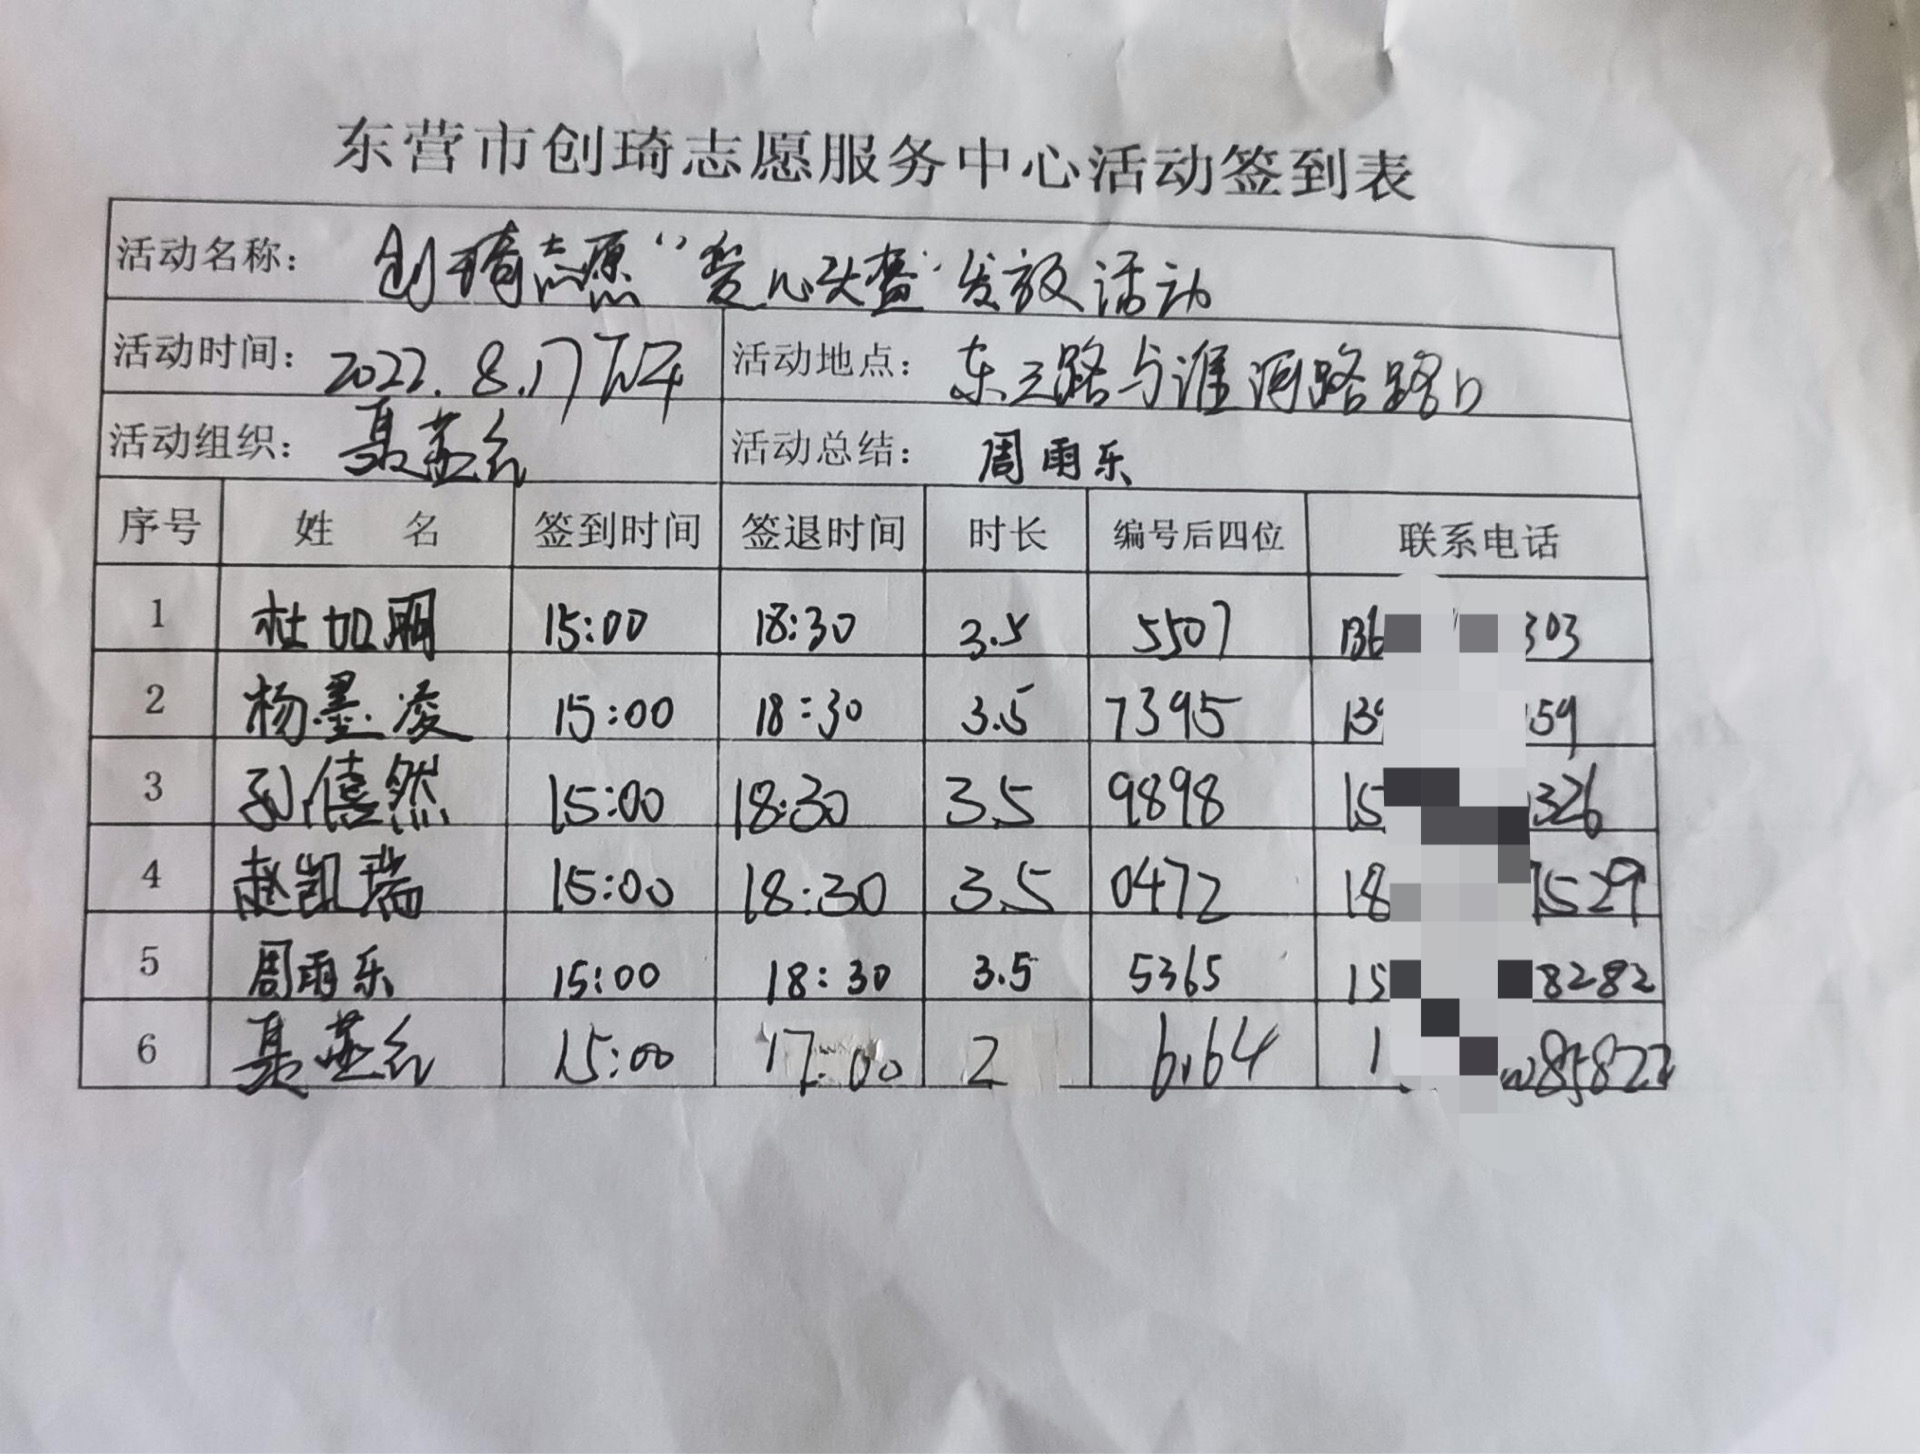 东营市创琦志愿服务中心活动签到表
活动名称： 创琦志愿“爱心头盔”发放活动
活动时间： 2022.8.17下午 活动地点： 东三路与淮河路路口
活动组织： 聂燕红 活动总结： 周雨乐
序号 姓 名 签到时间 签退时间 时长 编号后四位 联系电话
1 杜加丽 15:00 18:30 3.5 5507 136 303
2 杨墨凌 15:00 18:30 3.5 7395 139 159
3 孙僖然 15:00 18:30 3.5 9898 15 326
4 赵凯瑞 15:00 18:30 3.5 0472 18 1529
5 周雨乐 15:00 18:30 3.5 5365 15 8282
6 聂燕红 15:00 17:00 2 6164 1 285822